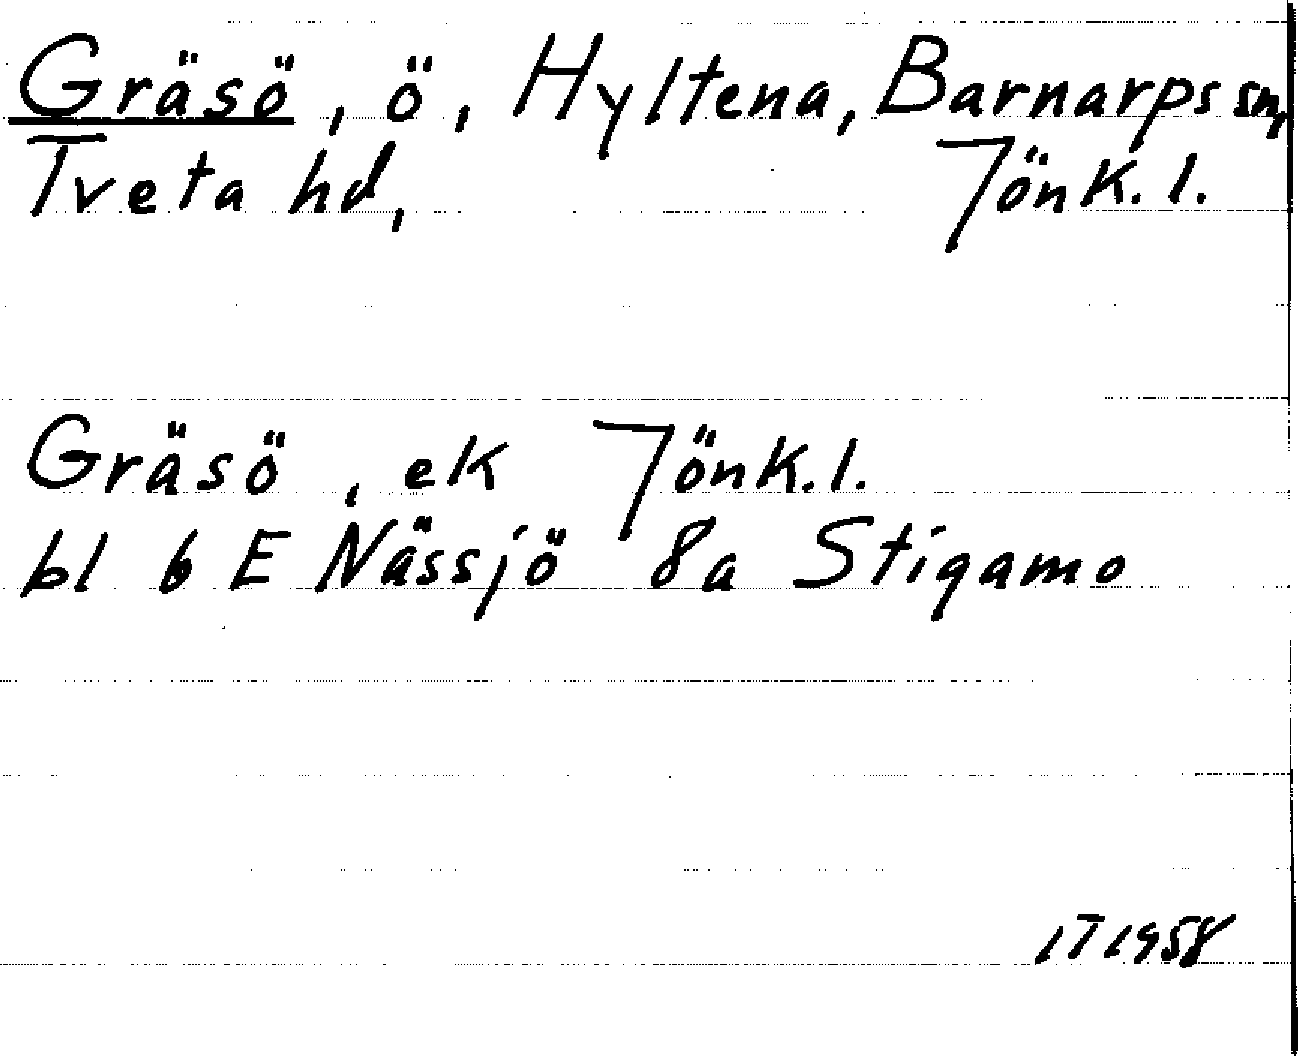 Gräsö, ö, Hyltena, Barnarps sn,
Tveta hd, Jönk. l.
Gräsö, ek Jönk. l.
bl 6 E Nässjö 8a Stigamo
IT 1958